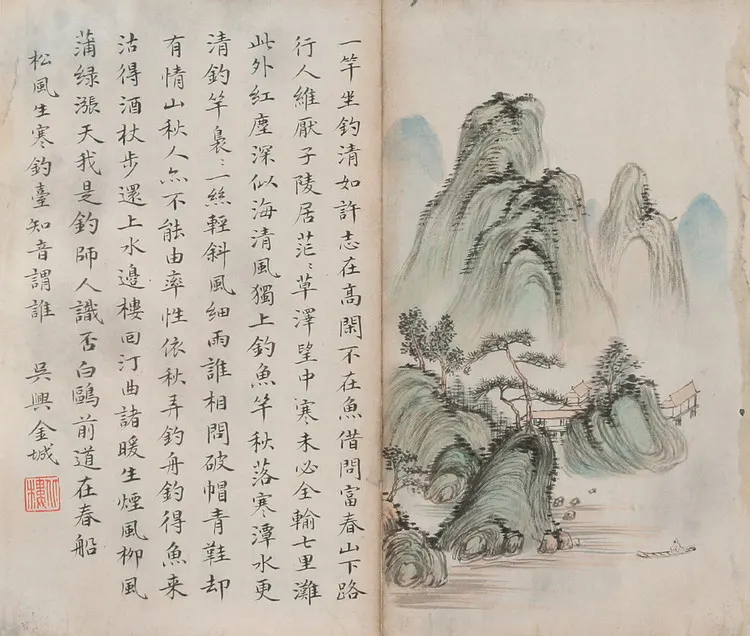 一竿坐釣清如許志在高閑不在魚借問富春山下路
行人維厭子陵居茫〻草澤望中寒未必全輸七里灘
此外紅塵深似海清風獨上釣魚竿秋落寒潭水更
清釣竿裊〻一絲輕斜風細雨誰相問破帽青鞋却
有情山秋人亦不能由率性依秋弄釣舟釣得魚来
沽得酒杖步還上水邊樓回汀曲諸暖生煙風柳風
蒲绿漲天我是釣師人識否白鷗前道在春船
松風生寒釣臺知音謂誰 吳興金城
北樓